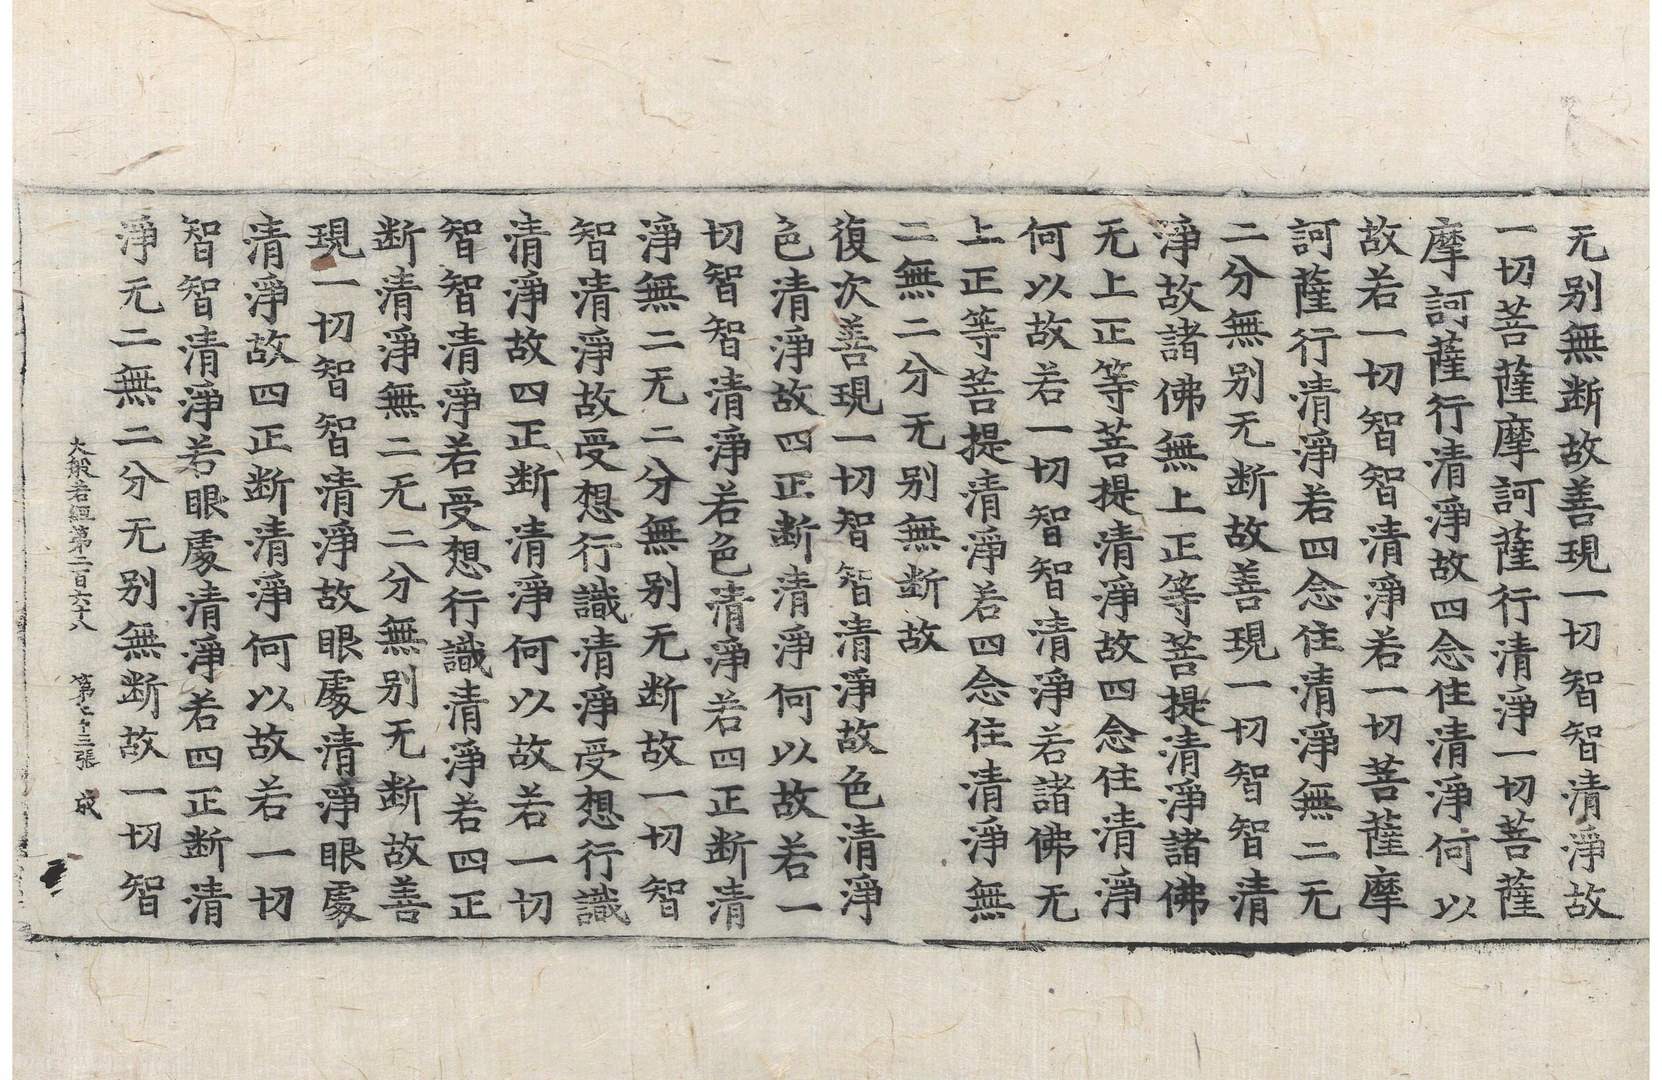 无别無断故善現一切智智清淨故
一切菩薩摩訶薩行清淨一切菩薩
摩訶薩行清淨故四念住清淨何以
故若一切智智清淨若一切菩薩摩
訶薩行清淨若四念住清淨無二无
二分無别无断故善現一切智智清
淨故諸佛無上正等菩提清淨諸佛
无上正等菩提清淨故四念住清淨
何以故若一切智智清淨若諸佛无
上正等菩提清淨若四念住清淨無
二無二分无别無断故
復次善現一切智智清淨故色清淨
色清淨故四正断清淨何以故若一
切智智清淨若色清淨若四正断清
淨無二无二分無别无断故一切智
智清淨故受想行識清淨受想行識
清淨故四正断清淨何以故若一切
智智清淨若受想行識清淨若四正
断清淨無二无二分無别无断故善
現一切智智清淨故眼處清淨眼處
清淨故四正断清淨何以故若一切
智智清淨若眼處清淨若四正断清
淨无二無二分无别無断故一切智
大般若經第二百六十八 第 十三張 成